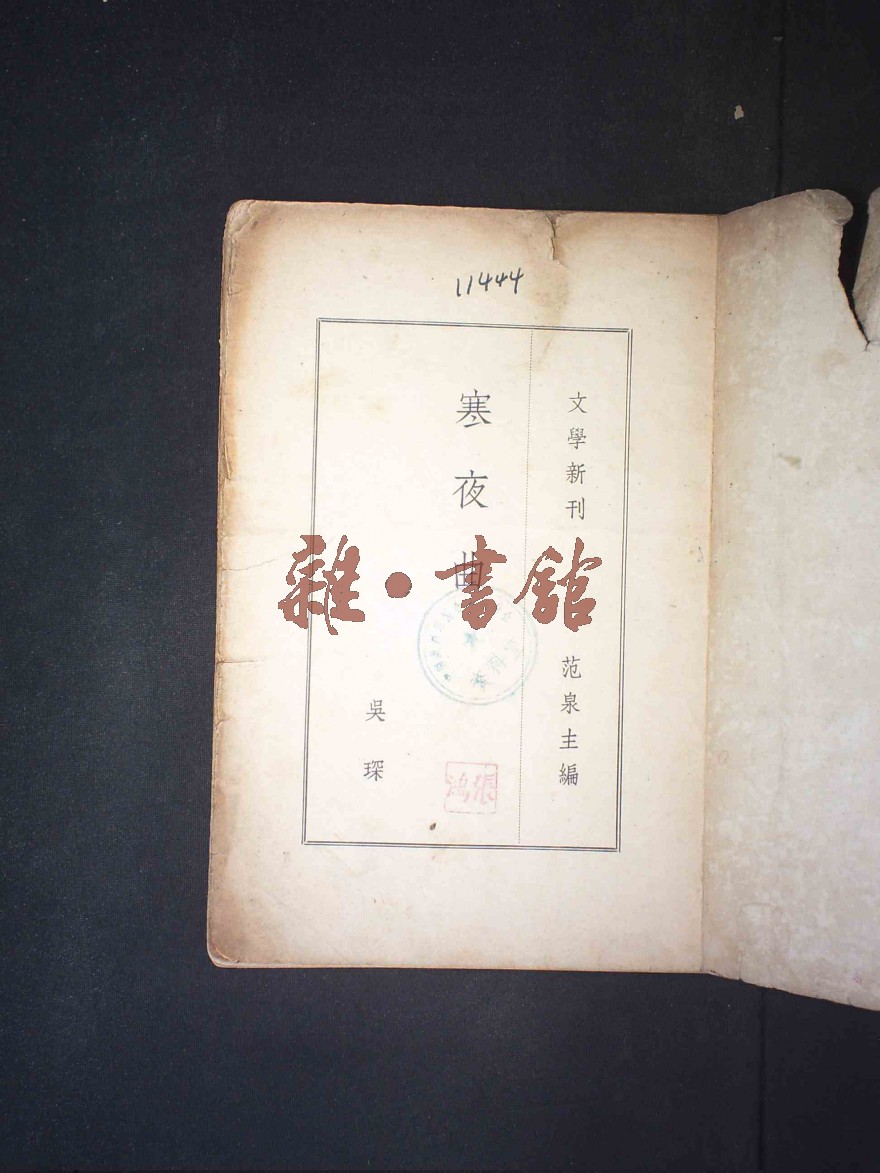 11444
文學新刊 范泉主編
寒夜曲
吳琛
雜·書館
張鴻